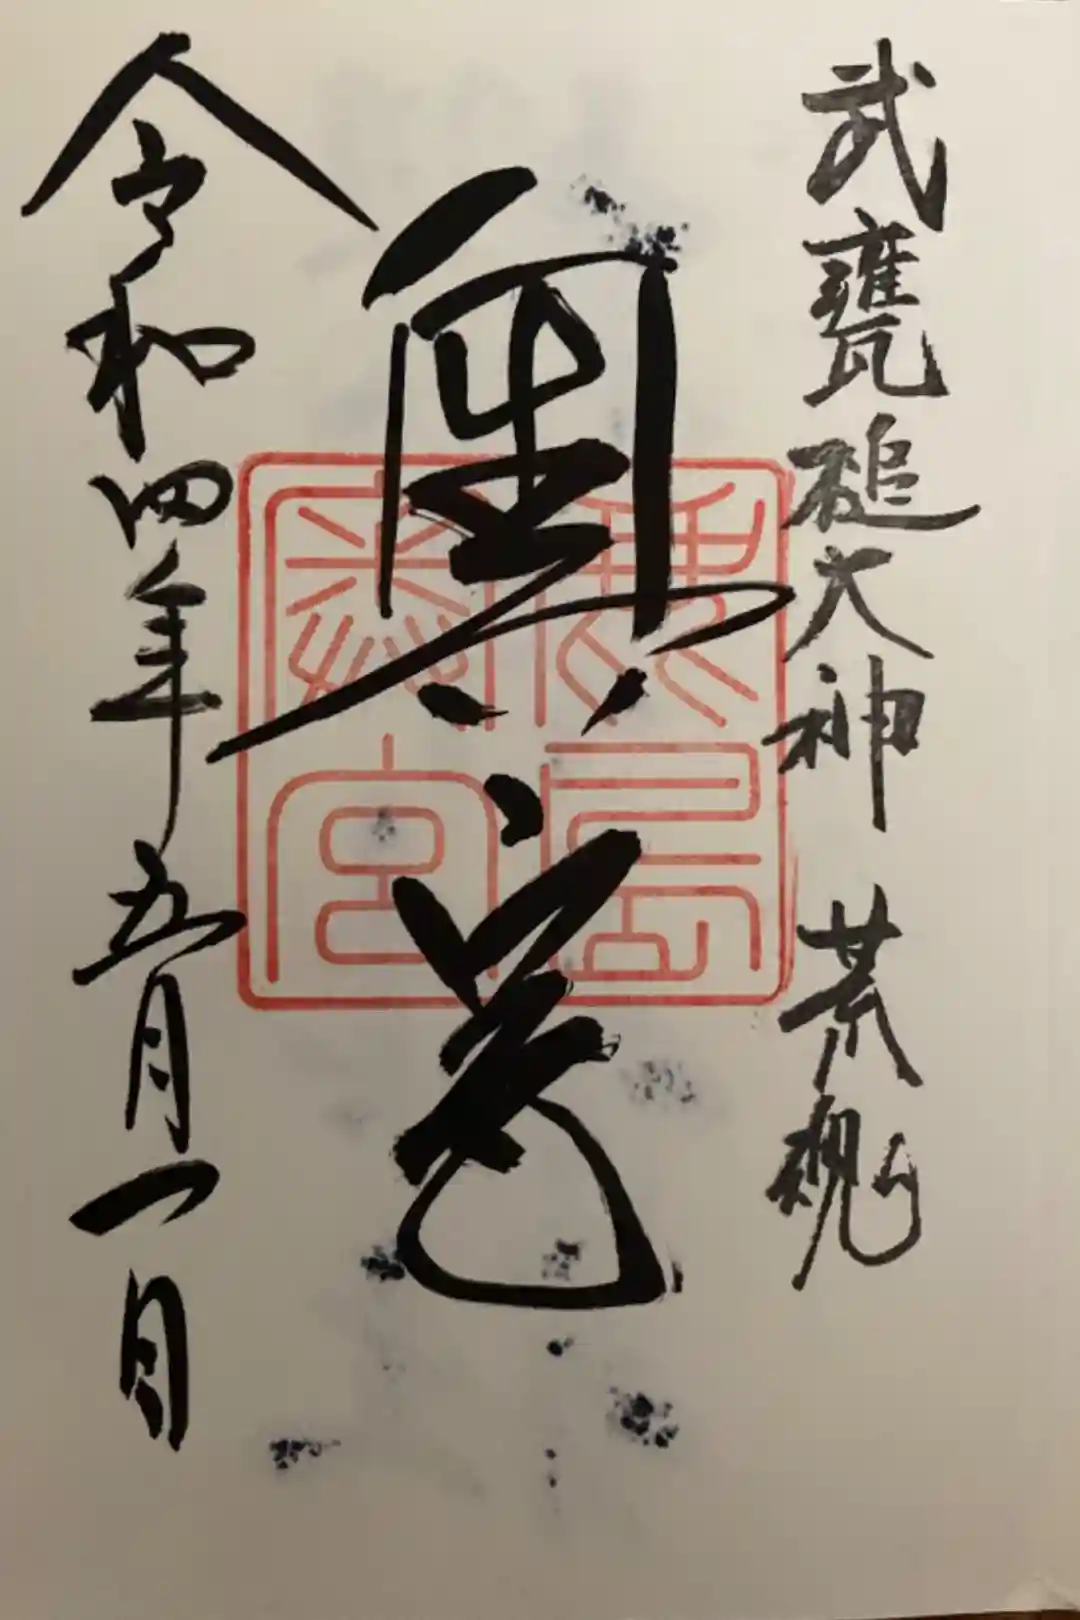 武甕槌大神 荒魂
奥宮
鹿島
神宮
令和四年五月一日